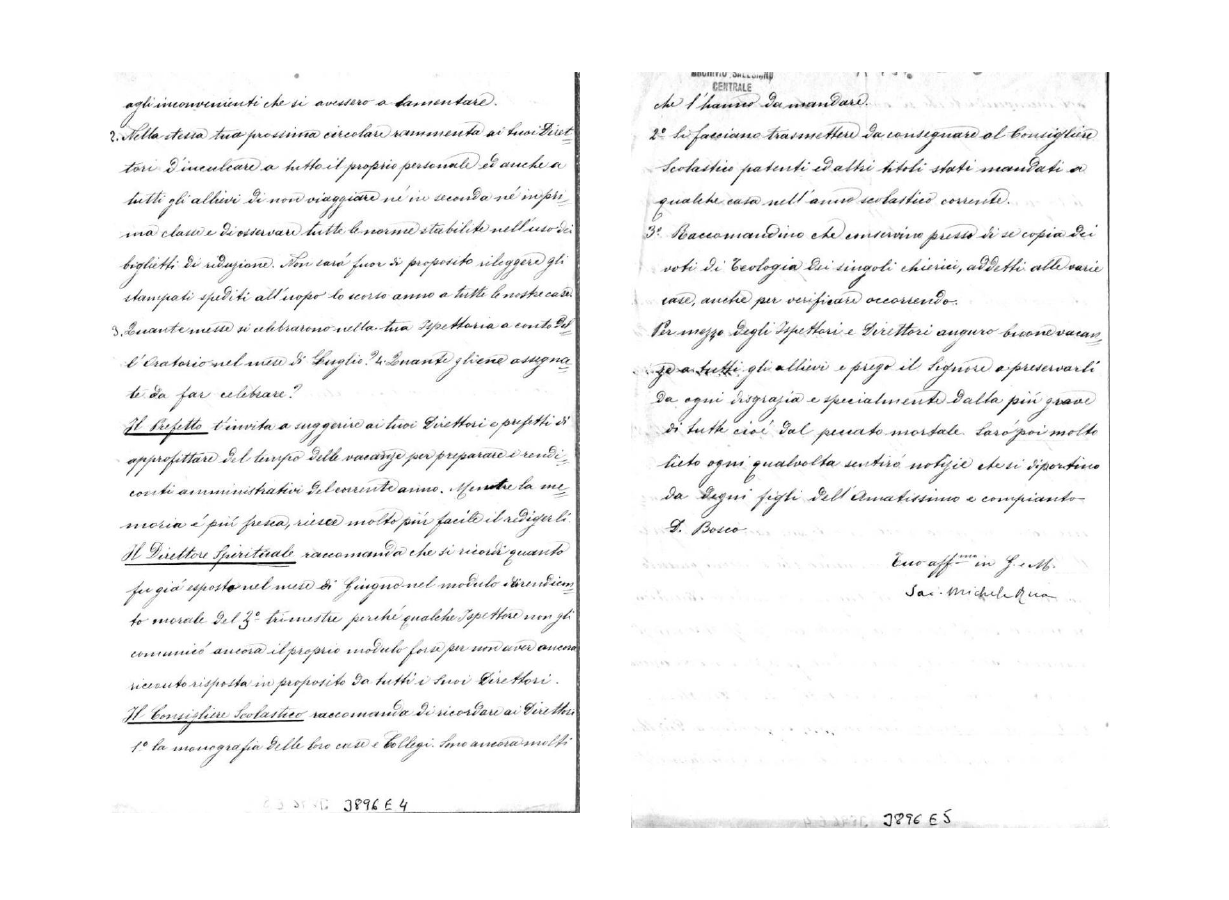 agli inconvenienti che si avessero a lamentare.
2. Nella stessa tua prossima circolare rammenta ai tuoi Diret=
tori d'inculcare a tutto il proprio personale ed anche a
tutti gli allievi di non viaggiare né in seconda né in pri=
ma classe e di osservare tutte le norme stabilite nell'uso dei
biglietti di riduzione. Non sará fuor di proposito rileggere gli
stampati spediti all'uopo lo scorso anno a tutte le nostre case.
3. Quante messe si celebrarono nella tua Ispettoria a conto del=
l'Oratorio nel mese di Luglio? 4. Quante gliene assegna=
te da far celebrare?
Il Prefetto t'invita a suggerire ai tuoi Direttori e prefetti di
approfittare del tempo delle vacanze per preparare i rendi=
conti amministrativi del corrente anno. Mentre la me=
moria é piú fresca, riesce molto piú facile il redigerli.
Il Direttore Spirituale raccomanda che si ricordi quanto
fu giá esposto nel mese di Giugno nel modulo di rendicon=
to morale del 3º trimestre perché qualche Ispettore non gli
comunicó ancora il proprio modulo forse per non aver ancora
ricevuto risposta in proposito da tutti i suoi Direttori.
Il Consigliere Scolastico raccomanda di ricordare ai Direttori
1º la monografia delle loro case e Collegi. Sono ancora molti
J896 E 4
ARCHIVIO SALESIANO
CENTRALE
che l'hanno da mandare.
2º Si facciano trasmettere da consegnare al Consigliere
Scolastico patenti ed altri titoli stati mandati a
qualche casa nell'anno scolastico corrente.
3º Raccomandino che conservino presso di se copia dei
voti di Teologia dei singoli chierici, addetti alle varie
case, anche per verificare occorrendo.
Per mezzo degli Ispettori e Direttori auguro buone vacan=
ze a tutti gli allievi e prego il Signore a preservarli
da ogni disgrazia e specialmente dalla piú grave
di tutte cioé dal peccato mortale. Saró poi molto
lieto ogni qualvolta sentiró notizie che si diportino
da degni figli dell'Amatissimo e compianto
D. Bosco
Tuo aff.mo in G. e M.
Sac. Michele Rua
J896 E 5